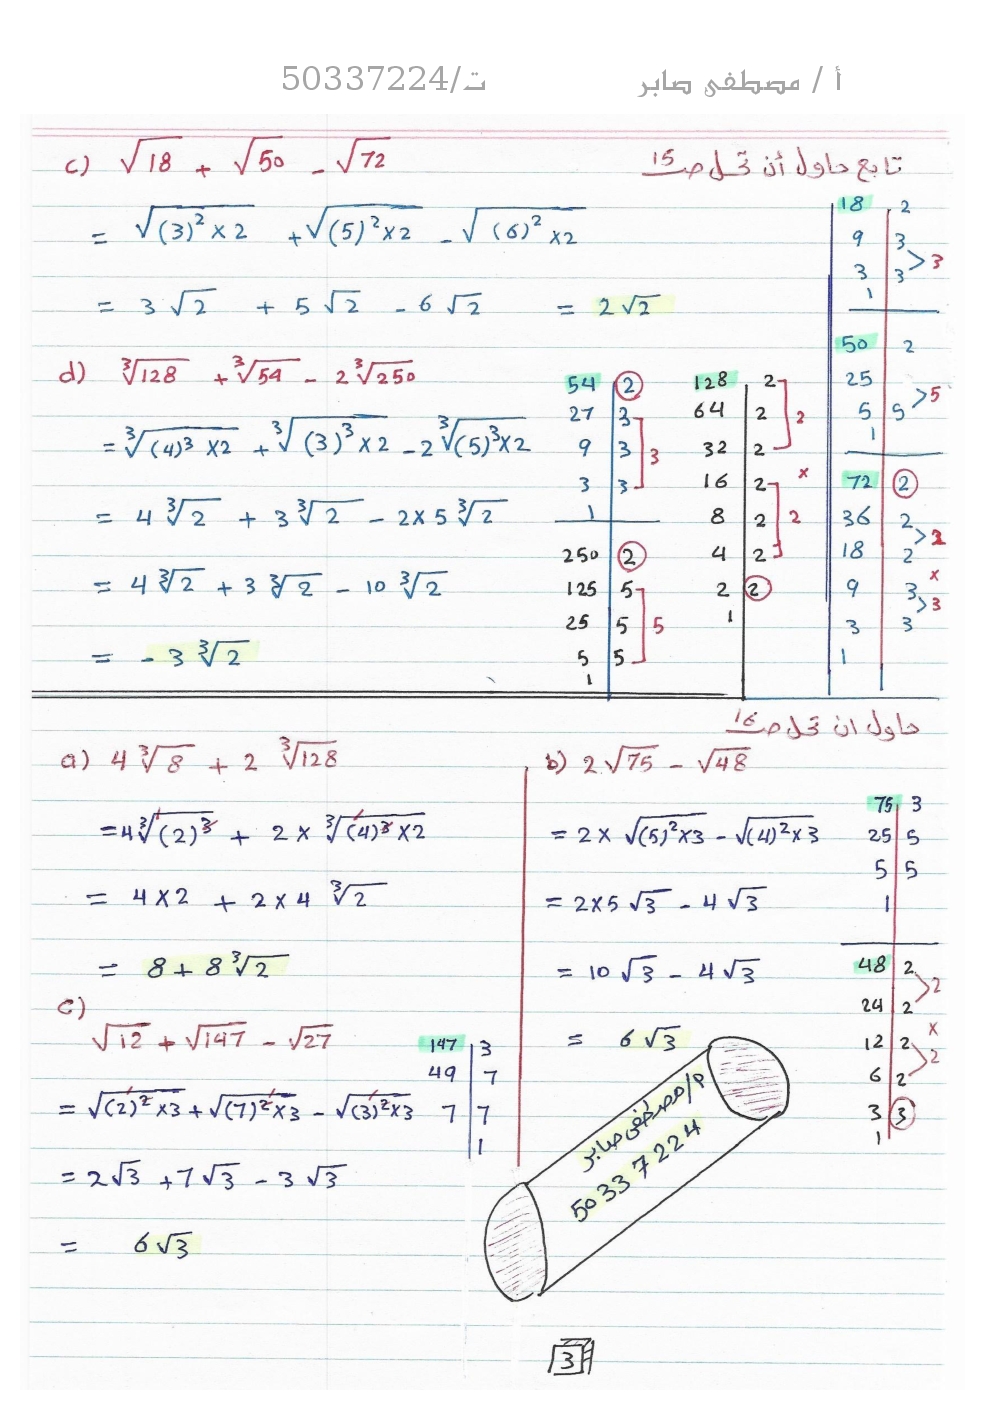 أ / مصطفى صابر ت/50337224
تابع حاول أن تحل صـ 15
c) √18 + √50 - √72
= √((3)² × 2) + √((5)² × 2) - √((6)² × 2)
= 3√2 + 5√2 - 6√2 = 2√2
18 | 2
9 | 3
3 | 3 > 3
1
50 | 2
25
5 | 5 > 5
1
72 | 2
36 | 2
18 | 2 > 2
×
9 | 3
3 | 3 > 3
1
d) ∛128 + ∛54 - 2∛250
= ∛((4)³ × 2) + ∛((3)³ × 2) - 2∛((5)³ × 2)
= 4∛2 + 3∛2 - 2 × 5∛2
= 4∛2 + 3∛2 - 10∛2
= - 3∛2
54 | 2
27 | 3
9 | 3 ] 3
3 | 3
1
250 | 2
125 | 5
25 | 5 ] 5
5 | 5
1
128 | 2
64 | 2 ] 2
32 | 2
×
16 | 2
8 | 2 ] 2
4 | 2
2 | 2
1
حاول ان تحل صـ 16
a) 4∛8 + 2∛128
= 4∛(2)³ + 2 × ∛((4)³ × 2)
= 4 × 2 + 2 × 4∛2
= 8 + 8∛2
b) 2√75 - √48
= 2 × √((5)² × 3) - √((4)² × 3)
= 2 × 5√3 - 4√3
= 10√3 - 4√3
= 6√3
75 | 3
25 | 5
5 | 5
1
48 | 2
24 | 2 > 2
×
12 | 2
6 | 2 > 2
3 | 3
1
c)
√12 + √147 - √27
= √((2)² × 3) + √((7)² × 3) - √((3)² × 3)
= 2√3 + 7√3 - 3√3
= 6√3
147 | 3
49 | 7
7 | 7
1
م/مصطفى صابر
50337224
3